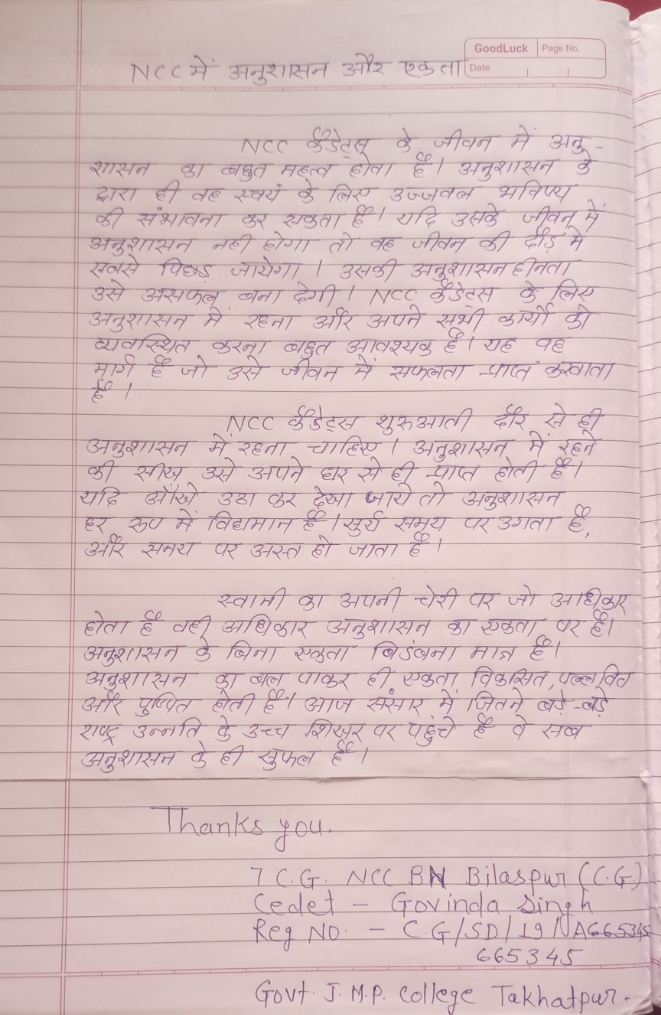 GoodLuck Page No.
Date
NCC में अनुशासन और एकता
NCC कैडेट्स के जीवन में अनु-
शासन का बहुत महत्व होता है। अनुशासन के
द्वारा ही वह स्वयं के लिए उज्जवल भविष्य
की संभावना कर सकता है। यदि उसके जीवन में
अनुशासन नही होगा तो वह जीवन की दौड़ में
सबसे पिछड़ जायेगा। उसकी अनुशासनहीनता
उसे असफल बना देगी। NCC कैडेट्स के लिए
अनुशासन में रहना और अपने सभी कार्यों को
व्यवस्थित करना बहुत आवश्यक है। यह वह
मार्ग है जो उसे जीवन में सफलता प्राप्त करवाता
है।
NCC कैडेट्स शुरुआती दौर से ही
अनुशासन में रहना चाहिए। अनुशासन में रहने
की सीख उसे अपने घर से ही प्राप्त होती है।
यदि आँखे उठा कर देखा जाये तो अनुशासन
हर रूप में विद्यमान है। सुर्य समय पर उगता है,
और समय पर अस्त हो जाता है।
स्वामी का अपनी चेरी पर जो अधिकार
होता है वही अधिकार अनुशासन का एकता पर है।
अनुशासन के बिना एकता बिडंबना मात्र है।
अनुशासन का बल पाकर ही एकता विकसित, पल्लवित
और पुष्पित होती है। आज संसार में जितने बड़े-बड़े
राष्ट्र उन्नति के उच्च शिखर पर पहुंचे है वे सब
अनुशासन के ही सुफल है।
Thanks you.
7 C.G. NCC BN Bilaspur (C.G)
Cedet - Govinda Singh
Reg NO. - C.G/SD/19/NA665345
665345
Govt. J.M.P. College Takhatpur.